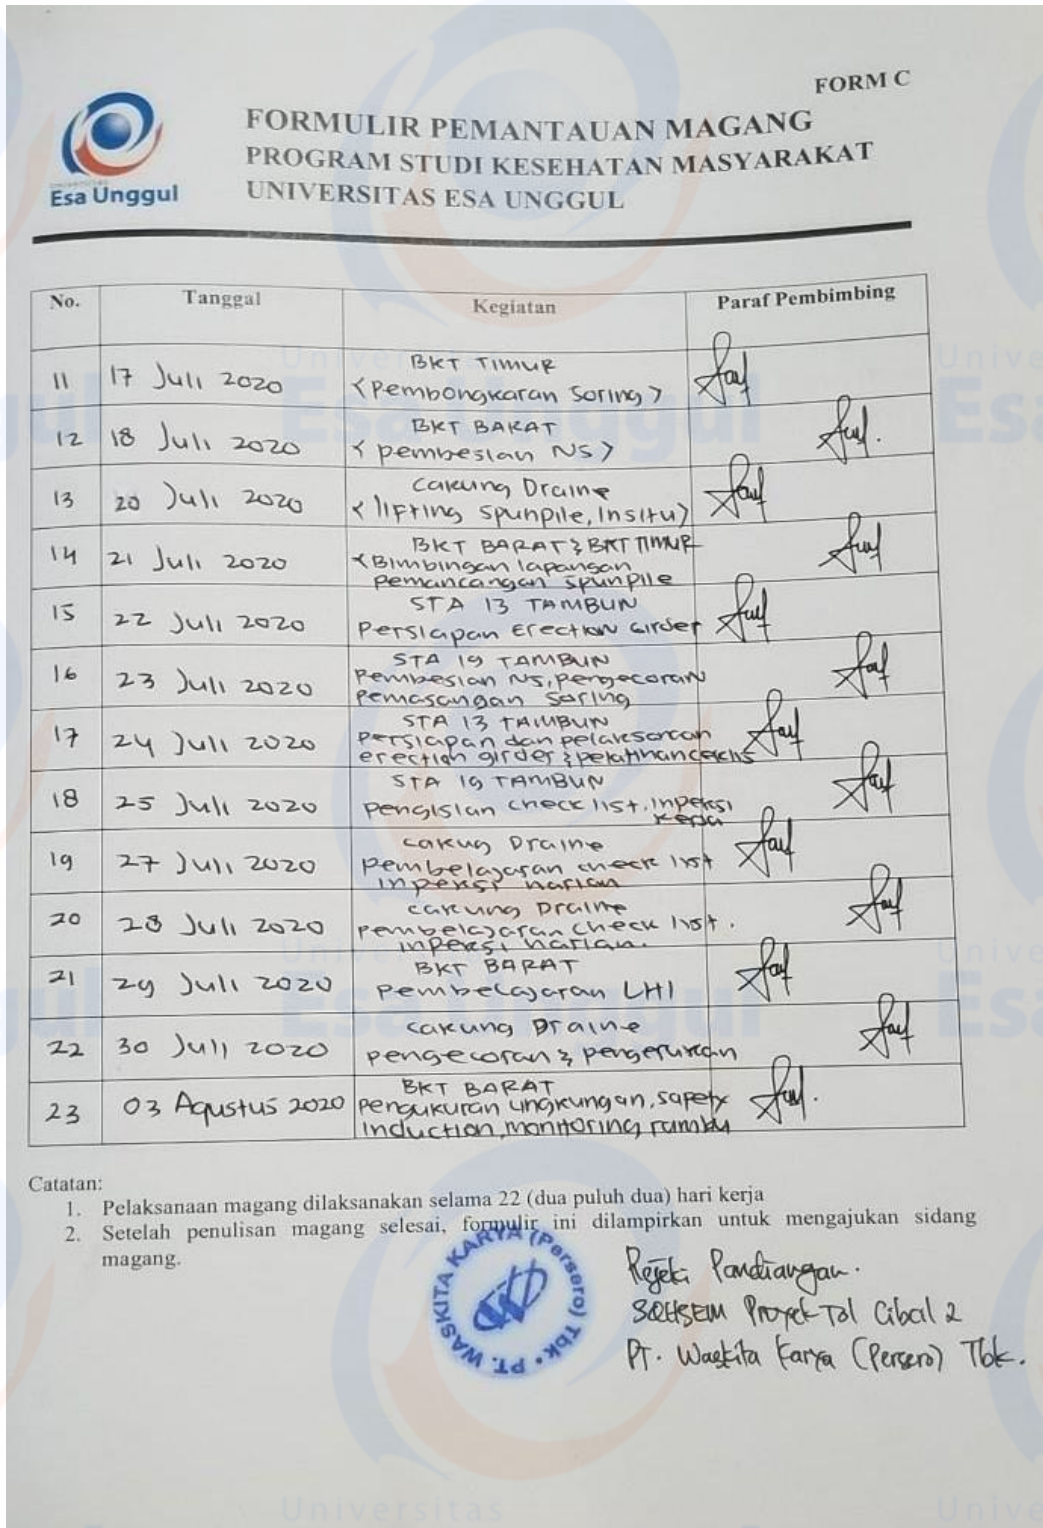 FORM C
FORMULIR PEMANTAUAN MAGANG
PROGRAM STUDI KESEHATAN MASYARAKAT
UNIVERSITAS ESA UNGGUL
Esa Unggul
No. Tanggal Kegiatan Paraf Pembimbing
11 17 Juli 2020 BKT TIMUR
<Pembongkaran Soring>
12 18 Juli 2020 BKT BARAT
<pembesian NS>
13 20 Juli 2020 Cakung Draine
<lifting spunpile, Insitu>
14 21 Juli 2020 BKT BARAT & BKT TIMUR
<Bimbingan lapangan
pemancangan spunpile
15 22 Juli 2020 STA 13 TAMBUN
Persiapan Erection Girder
16 23 Juli 2020 STA 19 TAMBUN
Pembesian NS, pengecoran
Pemasangan Soring
17 24 Juli 2020 STA 13 TAMBUN
Persiapan dan pelaksanaan
erection girder & pelatihan
18 25 Juli 2020 STA 19 TAMBUN
Pengisian check list, inpeksi
kerja
19 27 Juli 2020 Cakug Draine
pembelajaran check list
inpeksi harian
20 28 Juli 2020 Cakung Draine
pembelajaran check list.
inpeksi harian.
21 29 Juli 2020 BKT BARAT
Pembelajaran LHI
22 30 Juli 2020 Cakung Draine
pengecoran & pengerukan
23 03 Agustus 2020 BKT BARAT
Pengukuran lingkungan, safety
induction, monitoring rambu
Catatan:
1. Pelaksanaan magang dilaksanakan selama 22 (dua puluh dua) hari kerja
2. Setelah penulisan magang selesai, formulir ini dilampirkan untuk mengajukan sidang
magang.
PT. WASKITA KARYA (Persero) Tbk
Rejeki Pandiangan.
SQHSEM Proyek Tol Cibcil 2
PT. Waskita Karya (Persero) Tbk.
Universitas
Esa Unggul
Universitas
Esa Unggul
Universitas